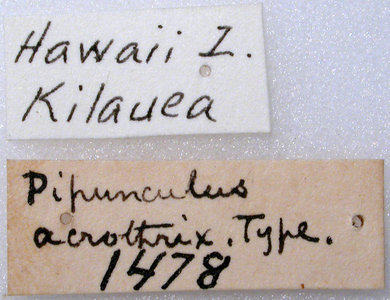 Hawaii I.
Kilauea
Pipunculus
acrothrix. Type.
1478